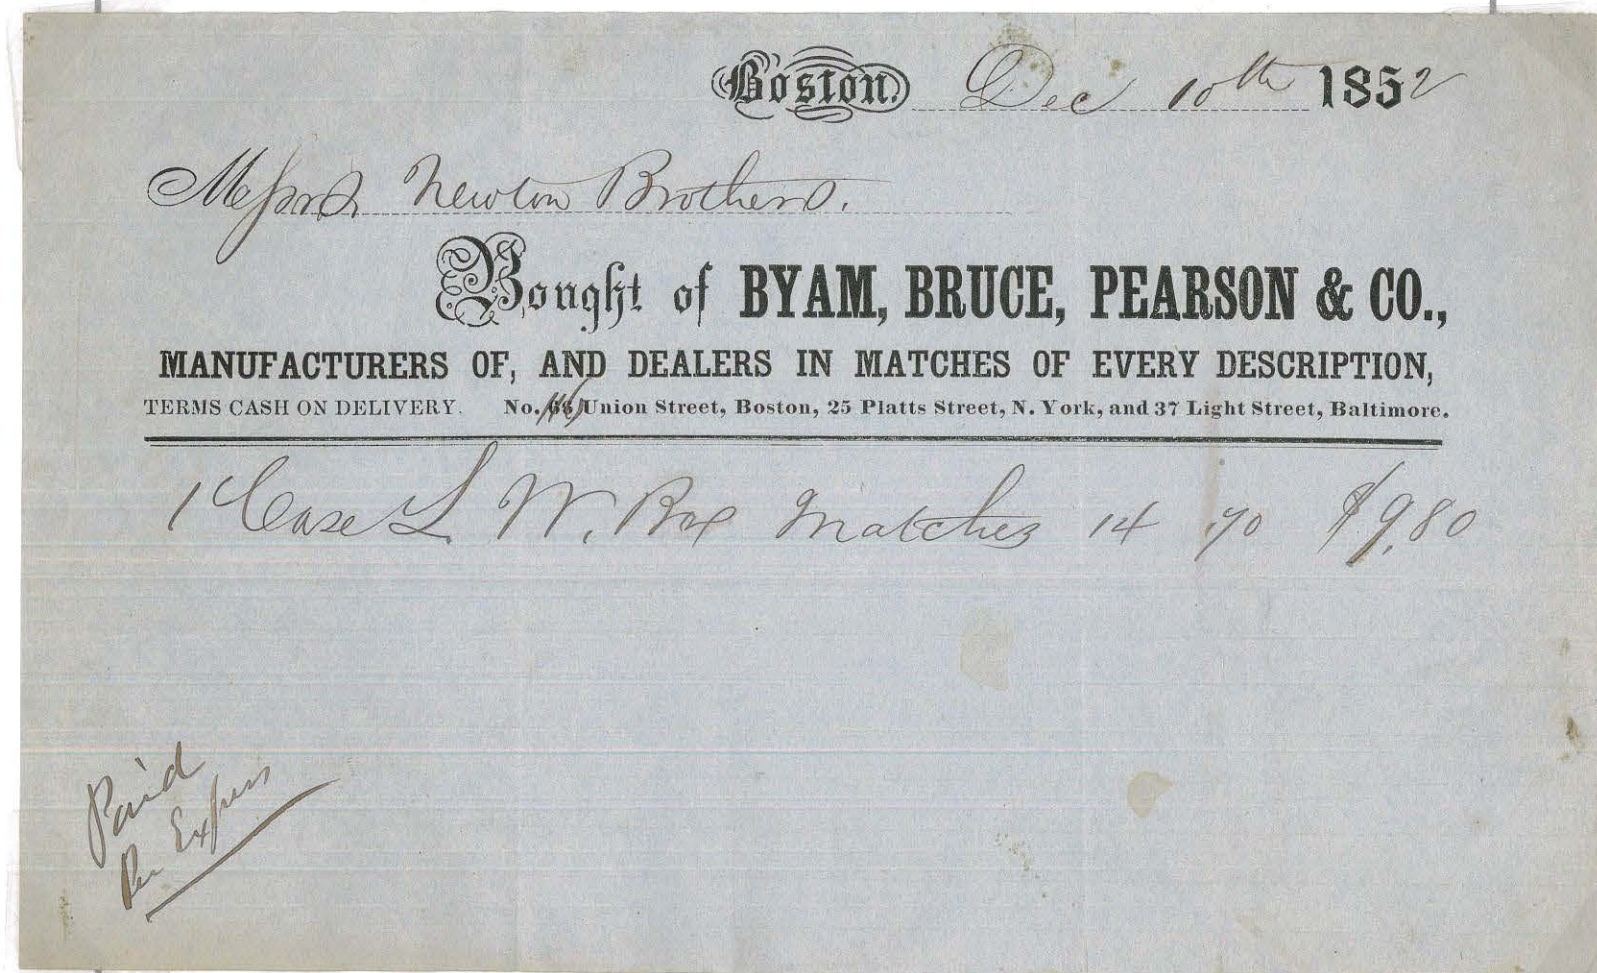 Boston, Dec 10th 1852
Messrs. Newton Brothers.
Bought of BYAM, BRUCE, PEARSON & CO.,
MANUFACTURERS OF, AND DEALERS IN MATCHES OF EVERY DESCRIPTION,
TERMS CASH ON DELIVERY. No. Union Street, Boston, 25 Platts Street, N. York, and 37 Light Street, Baltimore.
1 Case L. W. Box Matches 14 70 $9,80
Paid
Per Express